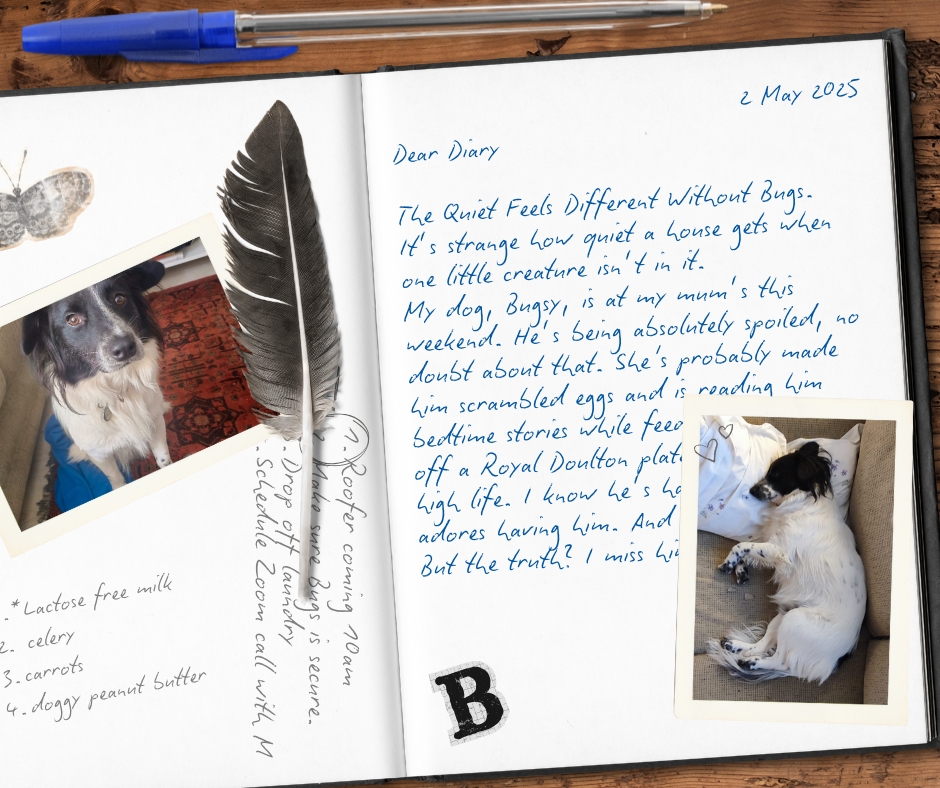 *Lactose free milk
2. celery
3. carrots
4. doggy peanut butter
1. Roofer coming 10am
Make sure Bugs is secure.
Drop off laundry
Schedule Zoom call with M
2 May 2025
Dear Diary
The Quiet Feels Different Without Bugs.
It's strange how quiet a house gets when
one little creature isn't in it.
My dog, Bugsy, is at my mum's this
weekend. He's being absolutely spoiled, no
doubt about that. She's probably made
him scrambled eggs and is reading him
bedtime stories while
off a Royal Doulton
high life. I know he's
adores having him. And
But the truth? I miss
B